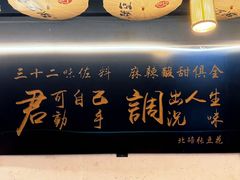 三十二味佐料 麻辣酸甜俱全
君可自己動手 調出人生况味
北碚张豆花